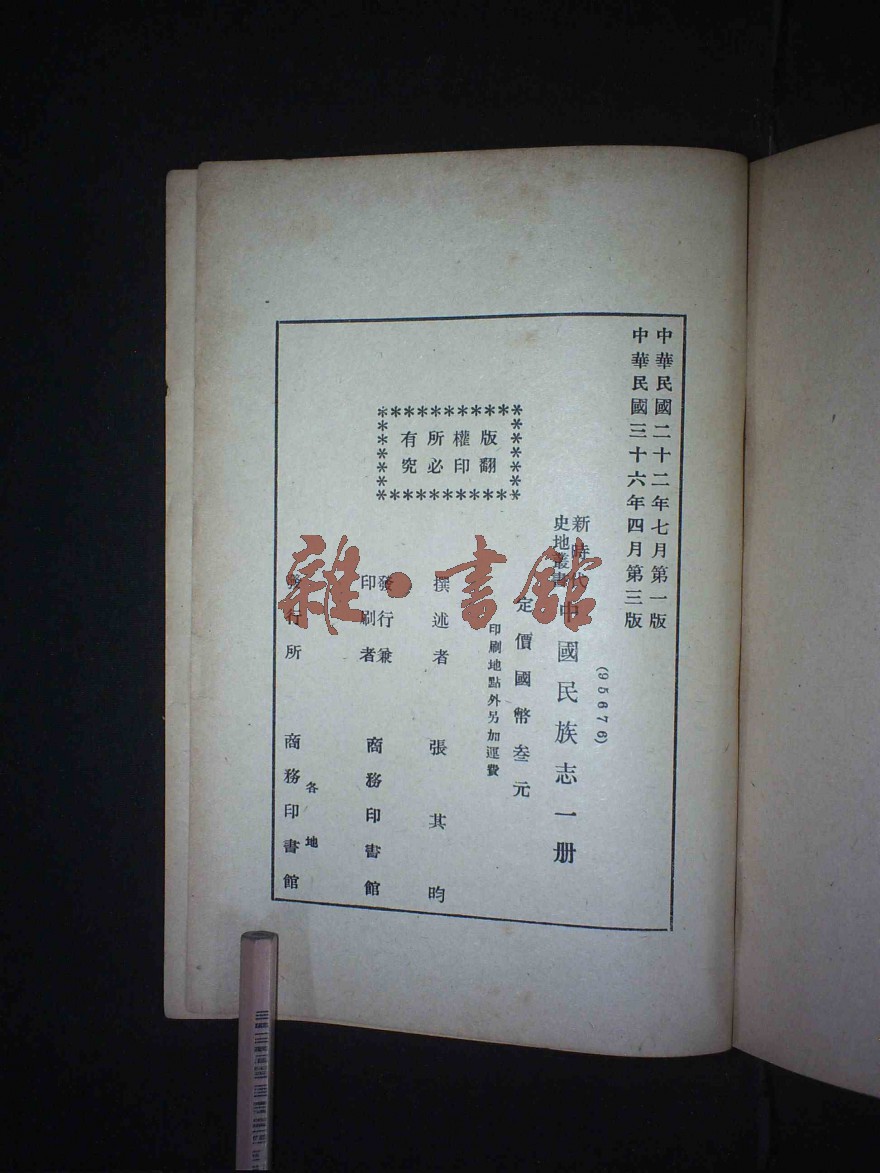 中華民國二十二年七月第一版
中華民國三十六年四月第三版
(95676)
新時代
史地叢書
中國民族志一册
定價國幣叁元
印刷地點外另加運費
版權所有
翻印必究
撰述者 張其昀
發行兼
印刷者 商務印書館
發行所 各地
商務印書館
雜·書館